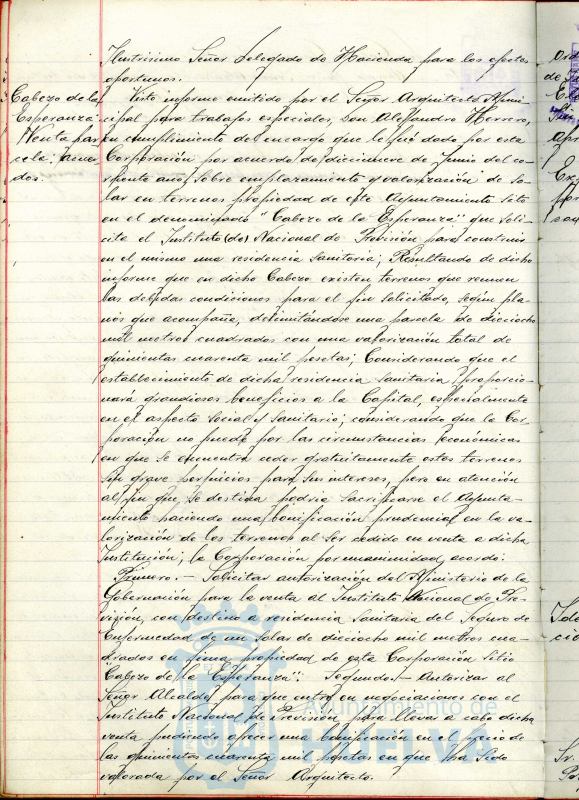 Ilustrisimo Señor Delegado de Hacienda para los efectos
oportunos.
Cabezo de la
Esperanza
Venta par
cela: acuer
dos.
Visto informe emitido por el Señor Arquitecto Muni-
cipal para trabajos especiales, Don Alejandro Herrero,
en cumplimiento del encargo que le fué dado por esta
Corporación por acuerdo de diecinueve de junio del co-
rriente año, sobre emplazamiento y valorización de so-
lar en terrenos propiedad de este Ayuntamiento sito
en el denominado "Cabezo de la Esperanza" que soli-
cita el Instituto (de) Nacional de Previsión para construir
en el mismo una residencia Sanitaria; Resultando de dicho
informe que en dicho Cabezo existen terrenos que reunen
las debidas condiciones para el fin solicitado, según pla-
nos que acompaña, delimitándose una parcela de dieciocho
mil metros cuadrados con una valorización total de
quinientas cuarenta mil pesetas; Considerando que el
establecimiento de dicha residencia sanitaria, proporcio-
nará grandiosos beneficios a la Capital, especialmente
en el aspecto Social y Sanitario; considerando que la Cor-
poración no puede por las circunstancias económicas
en que se encuentra ceder gratuitamente estos terrenos
sin grave perjuicios para sus intereses, pero en atención
al fin que se destina podría sacrificarse el Ayunta-
miento haciendo una bonificación prudencial en la va-
lorización de los terrenos al ser cedido en venta a dicha
Institución; la Corporación por unanimidad, acordó:
Primero.- Solicitar autorización del Ministerio de la
Gobernación para la venta al Instituto Nacional de Pre-
visión, con destino a residencia Sanitaria del Seguro de
Enfermedad de un solar de dieciocho mil metros cua-
drados en finca propiedad de esta Corporación Sitio
"Cabezo de la Esperanza": Segundo.- Autorizar al
Señor Alcalde, para que entre en negociaciones con el
Instituto Nacional de Previsión para llevar a cabo dicha
venta pudiendo ofrecer una bonificación en el precio de
las quinientas cuarenta mil pesetas en que ha sido
valorada por el Señor Arquitecto.
Ayuntamiento de
HUELVA